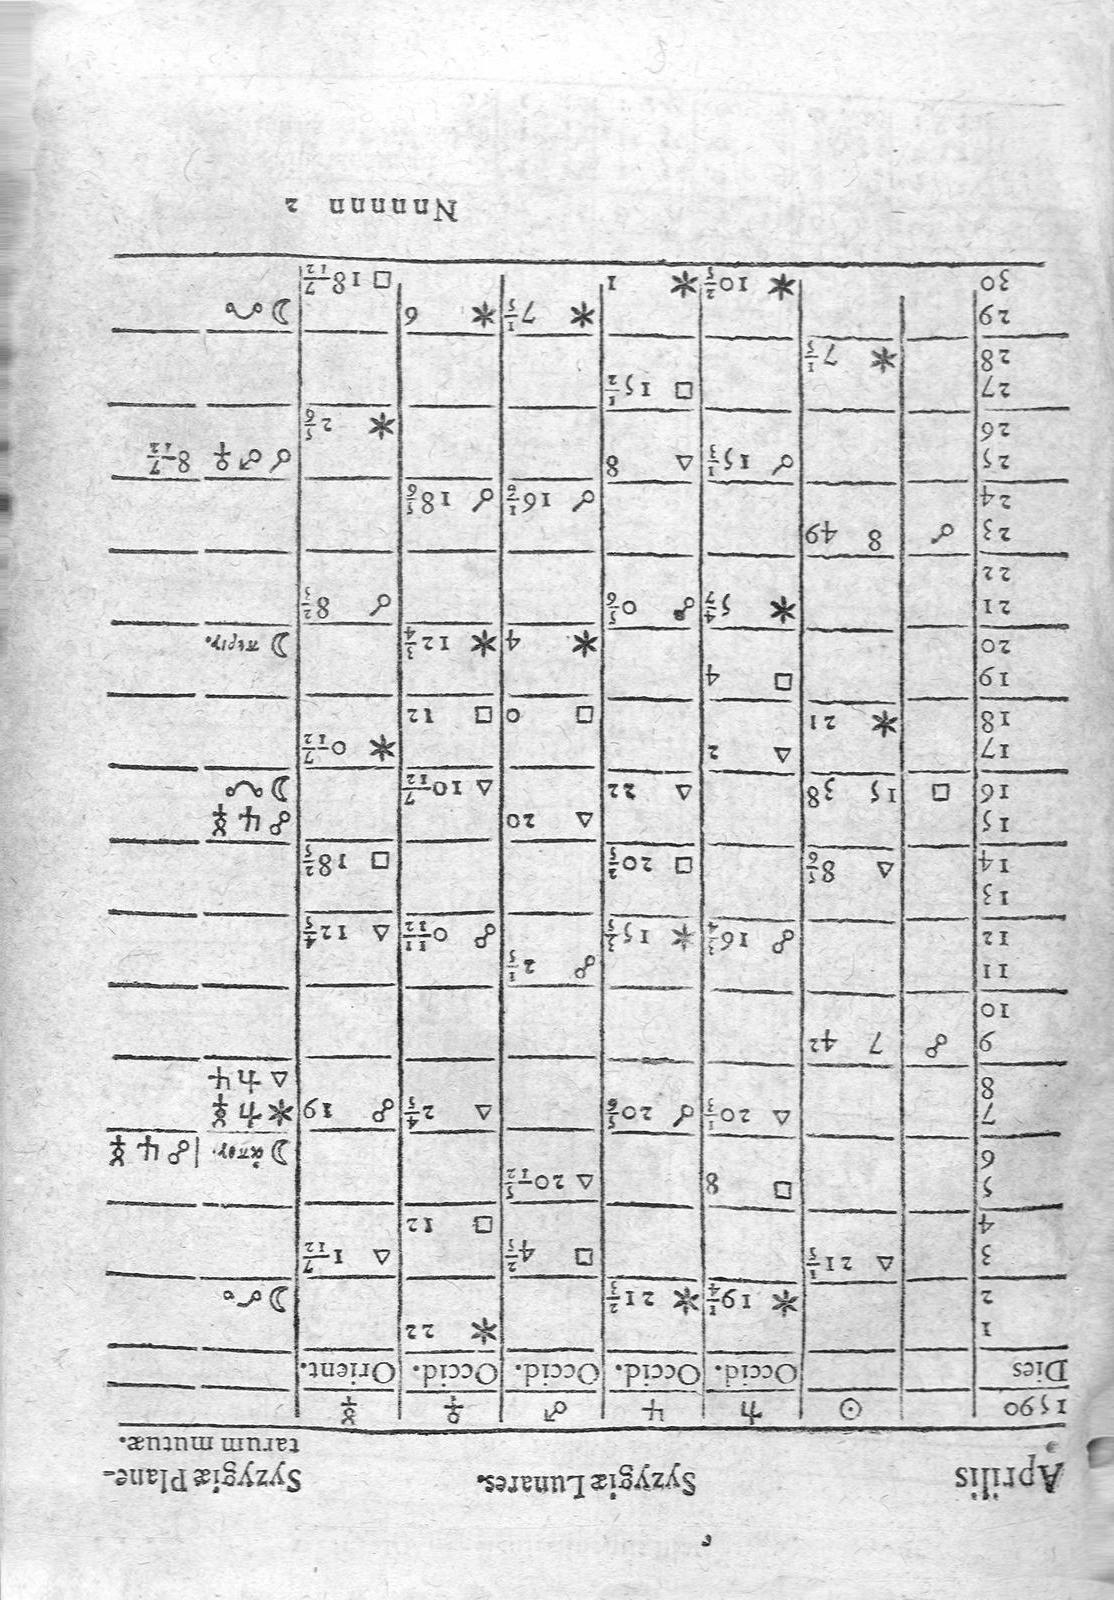 Aprilis Syzygiæ Lunares. Syzygiæ Plane-
tarum mutuæ.
1590 ☉ ♄ ♃ ♂ ♀ ☿
Dies Occid. Occid. Occid. Occid. Orient.
1 ⚹ 22
2 ⚹ 19 1/4 ⚹ 21 2/3 ☽ ☊
3 △ 21 1/5 □ 4 2/5 △ 1 7/12
4 □ 12
5 □ 8 △ 20 5/12
6 ☽ ἀπογ. | ☍ ♃ ☿
7 △ 20 1/3 ☌ 20 5/6 △ 2 4/5 ☍ 19 ⚹ ♄ ☿
8 △ ♄ ♃
9 ☍ 7 42
10
11 ☍ 2 1/5
12 ☍ 16 3/4 ⚹ 15 ☍ 0 11/12 △ 12 4/5
13
14 △ 8 5/6 □ 20 2/5 □ 18 2/5
15 △ 20 ☍ ♃ ☿
16 □ 15 38 △ 22 △ 10 7/12 ☽ ☋
17 △ 2 ⚹ 0 7/12
18 ⚹ 21 □ 0 □ 12
19 □ 4
20 ⚹ 4 ⚹ 12 3/4 ☽ περιγ.
21 ⚹ 5 ☍ 0 5/6 ☌ 8 2/3
22
23 ☌ 8 49
24 ☌ 16 1/6 ☌ 18 5/6
25 ☌ 15 1/3 △ 8 ☌ ♂ ♀ 8 7/12
26 ⚹ 2 5/6
27 □ 15 1/2
28 ⚹ 7 1/5
29 ⚹ 7 1/5 ⚹ 6 ☽ ☊
30 ⚹ 10 2/5 ⚹ 1 □ 18 7/12
Nnnnnn 2